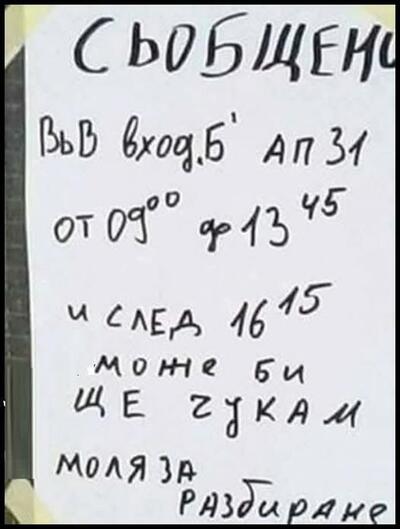 СЬОБЩЕНИ
ВЬВ ВХОД.Б' АП 31
ОТ 09⁰⁰ до 13 ⁴⁵
И СЛЕД 16 ¹⁵
може би
ЩЕ ЧУКАМ
МОЛЯ ЗА
РАЗбиране